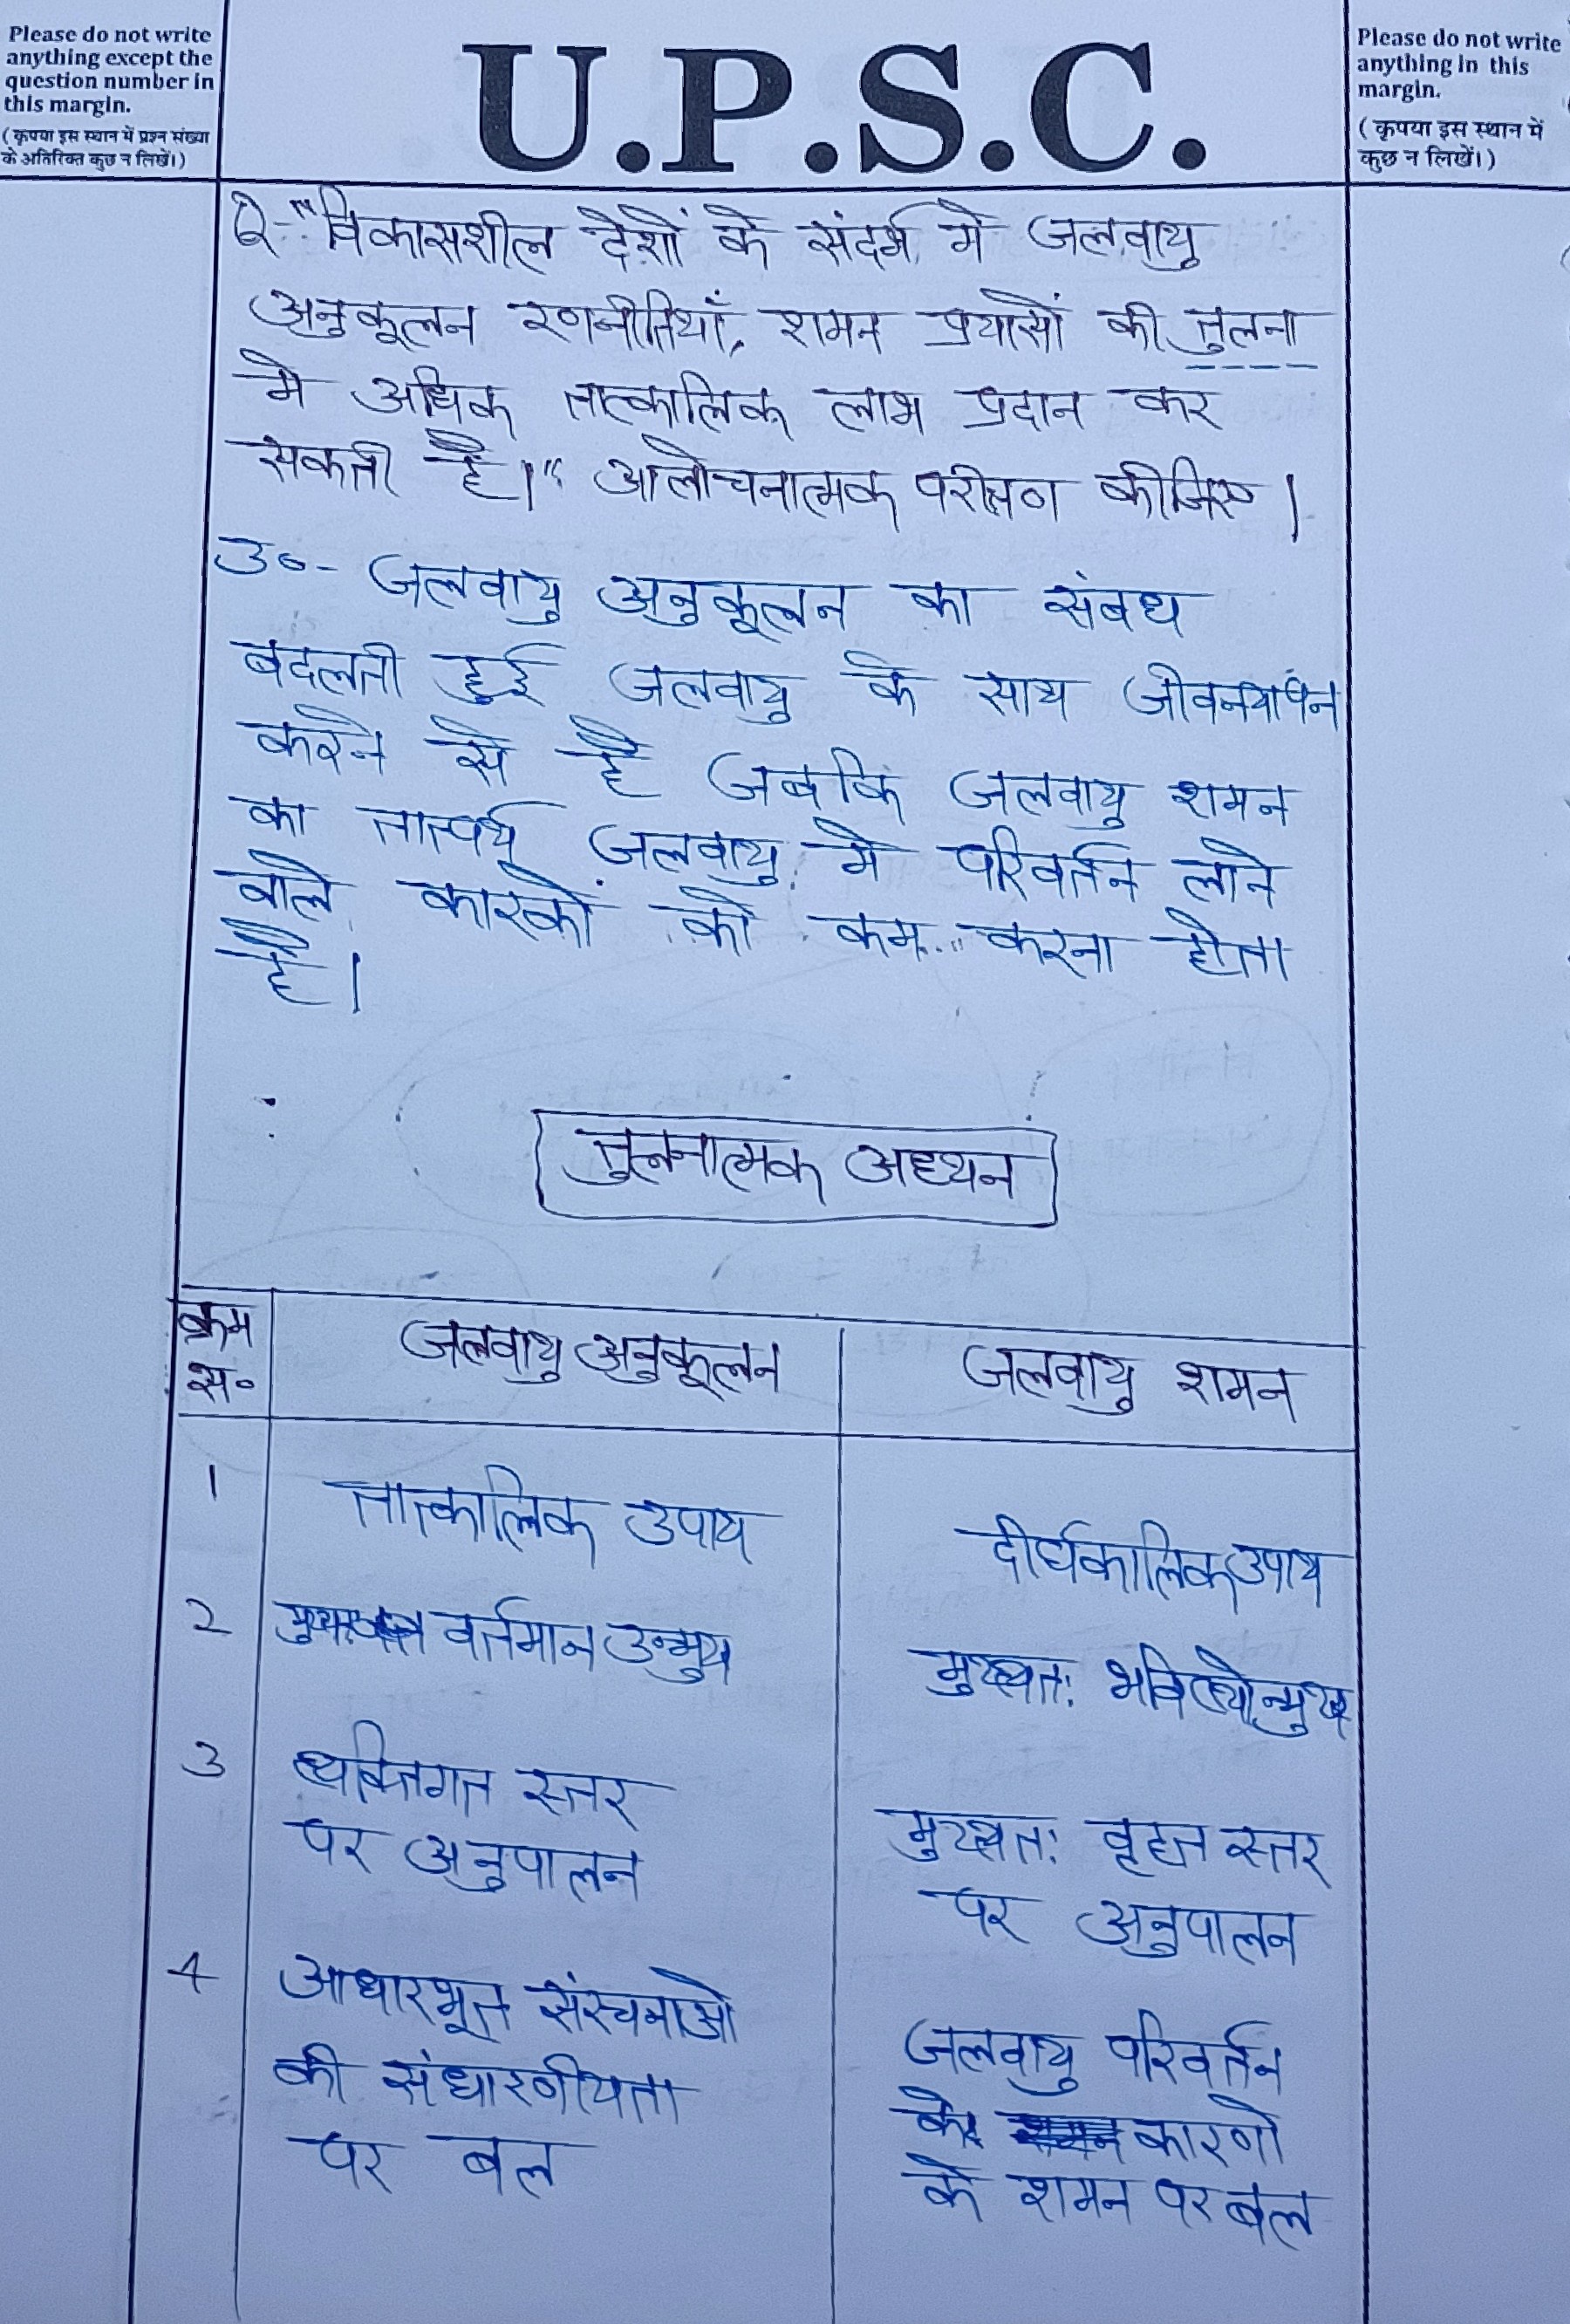 Please do not write
anything except the
question number in
this margin.
(कृपया इस स्थान में प्रश्न संख्या
के अतिरिक्त कुछ न लिखें।)
U.P.S.C.
Please do not write
anything in this
margin.
(कृपया इस स्थान में
कुछ न लिखें।)
Q- "विकासशील देशों के संदर्भ मे जलवायु
अनुकूलन रणनीतियाँ, शमन प्रयासों की तुलना
मे अधिक तात्कालिक लाभ प्रदान कर
सकती है।" आलोचनात्मक परीक्षण कीजिए।
उ०- जलवायु अनुकूलन का संबध
बदलती हुई जलवायु के साथ जीवनयापन
करने से है जबकि जलवायु शमन
का तात्पर्य जलवायु मे परिवर्तन लाने
वाले कारकों को कम करना होता
है।
तुलनात्मक अध्यन
क्रम जलवायु अनुकूलन जलवायु शमन
स०
1 तात्कालिक उपाय दीर्घकालिक उपाय
2 वर्तमान उन्मुख मुख्यतः भविष्योन्मुख
3 व्यक्तिगत स्तर मुख्यतः वृहत स्तर
पर अनुपालन पर अनुपालन
4 आधारभूत संरचनाओ जलवायु परिवर्तन
की संधारणीयता के कारणो
पर बल के शमन पर बल